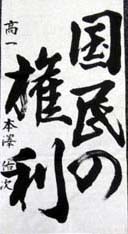 国民の
権利
高一 本澤 佑次